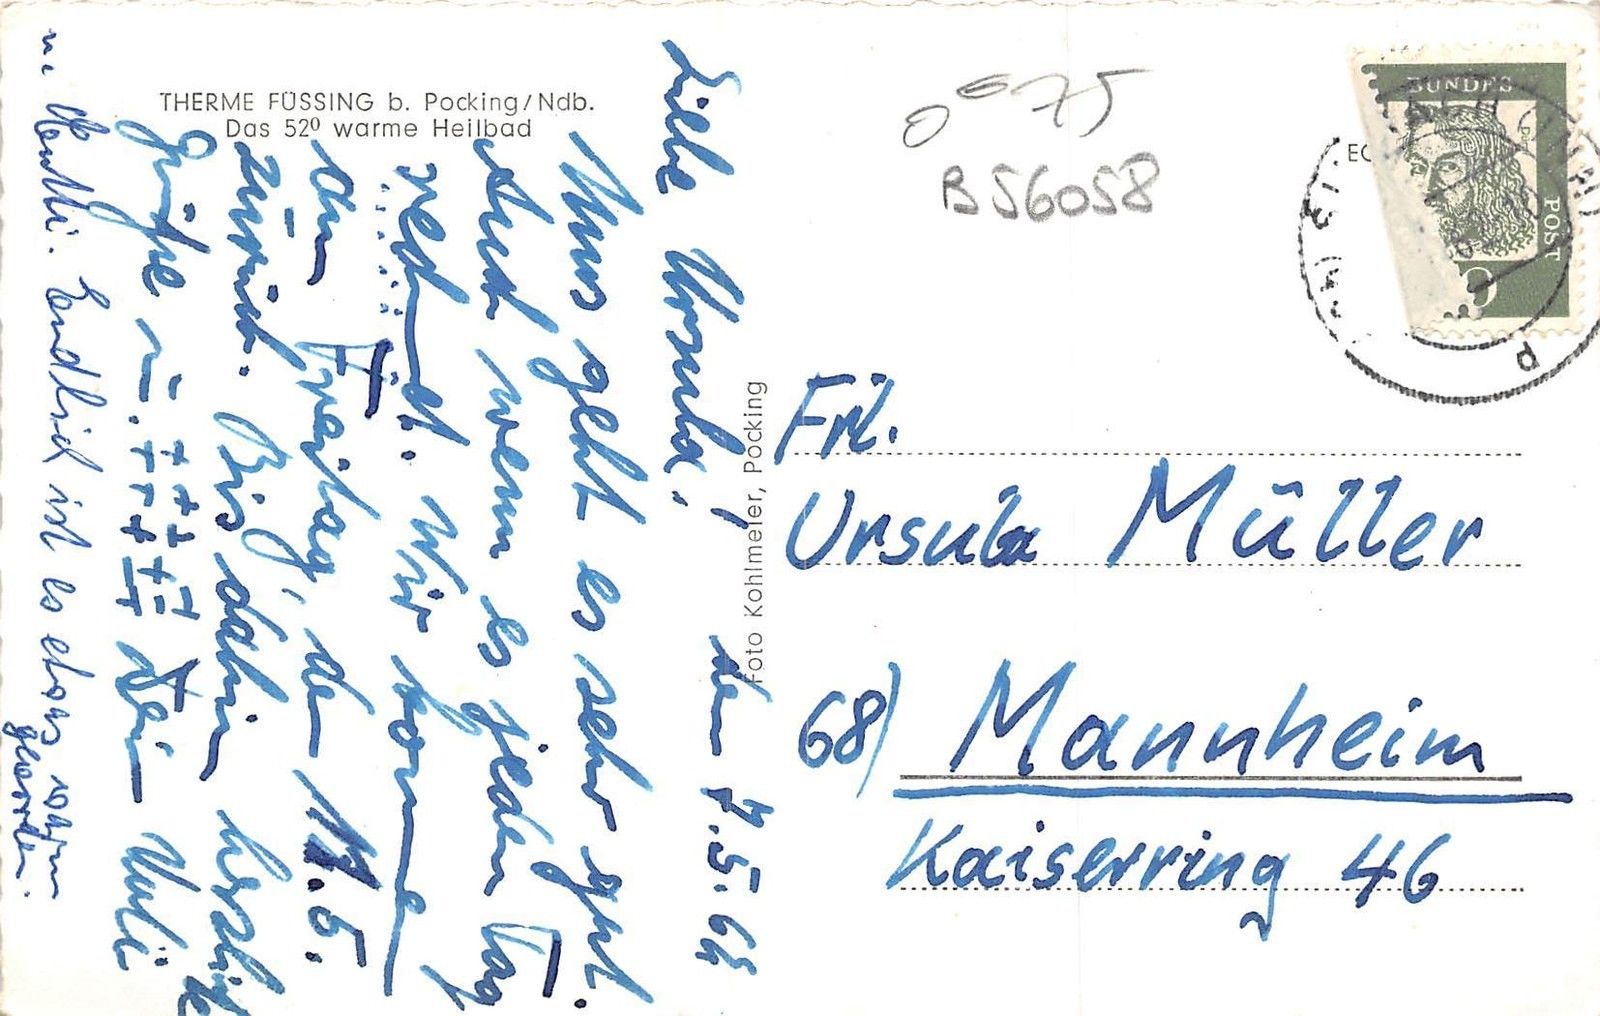 THERME FÜSSING b. Pocking/Ndb.
Das 52⁰ warme Heilbad
Foto Kohlmeier, Pocking
0 75
B 56058
BUNDES
POST
Frl.
Ursula Müller
68) Mannheim
Kaiserring 46
den 7.5.64
Liebe Ursula!
Uns geht es sehr gut.
Auch wenn es jeden Tag
regnet. Wir komme
am Freitag, de 15.
zurück. Bis dahin herzliche
Grüße u. Dein
Endlich ist es etwas warm
geworden.